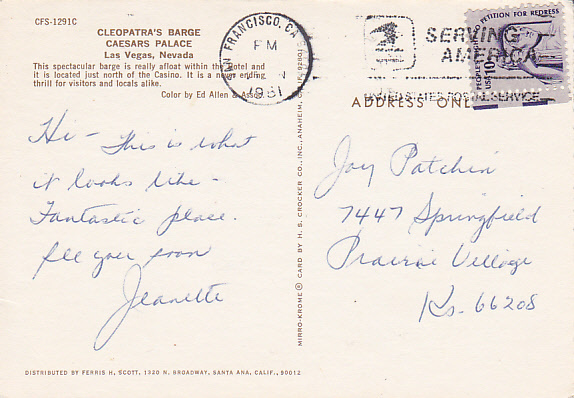 CFS-1291C
CLEOPATRA'S BARGE
CAESARS PALACE
Las Vegas, Nevada
This spectacular barge is really afloat within the Hotel and
it is located just north of the Casino. It is a never ending
thrill for visitors and locals alike.
Color by Ed Allen & Assoc.
SAN FRANCISCO, CA
PM
1981
SERVING
AMERICA
UNITED STATES POSTAL SERVICE
PETITION FOR REDRESS
PEOPLE
USA 10c
ADDRESS ONLY
Hi - This is what
it looks like -
Fantastic place.
See you soon
Jeanette
Joy Patchin
7447 Springfield
Prairie Village
Ks. 66208
MIRRO-KROME® CARD BY H. S. CROCKER CO., INC., ANAHEIM, CALIF. 92801
DISTRIBUTED BY FERRIS H. SCOTT, 1320 N. BROADWAY, SANTA ANA, CALIF., 90012